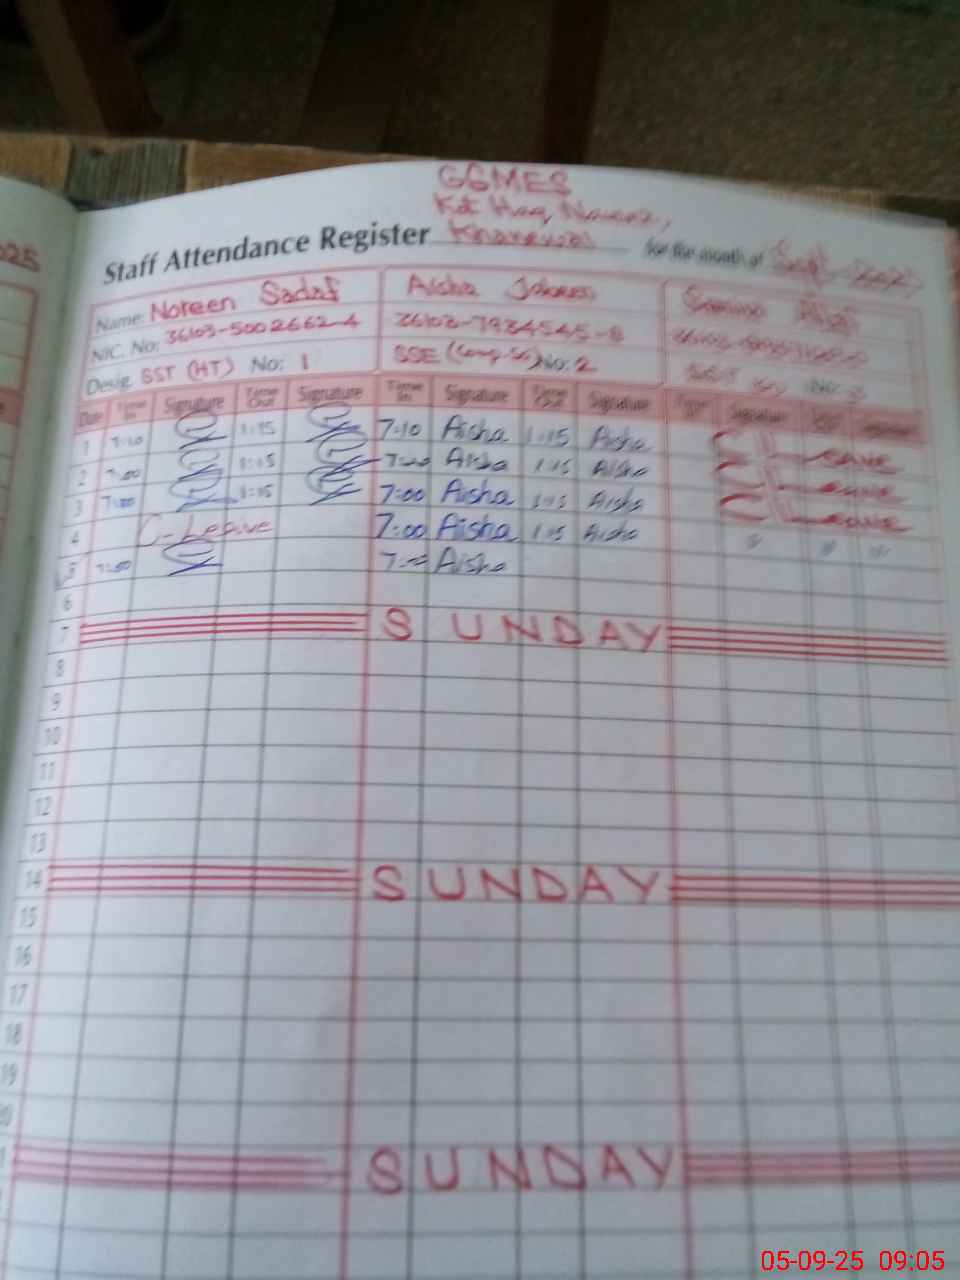 025
GGMES
Kot Haq Nawaz,
Staff Attendance Register Khanewal for the month of Sept. 2025
Name: Noreen Sadaf Aisha Samina
NIC. No: 36103-5002662-4 36103-7934545-8
Desig. SST (HT) No: 1 SSE (Comp.Sc) No: 2
Date Time In Signature Time Out Signature Time In Signature Time Out Signature Time In Signature
1 7:10 1:15 7:10 Aisha 1:15 Aisha
2 7:00 1:15 7:00 Aisha 1:15 Aisha
3 7:00 1:15 7:00 Aisha 1:15 Aisha
4 C-Leave 7:00 Aisha 1:15 Aisha
5 7:00 7:00 Aisha
6
7 SUNDAY
8
9
10
11
12
13
14 SUNDAY
15
16
17
18
19
20
SUNDAY
05-09-25 09:05